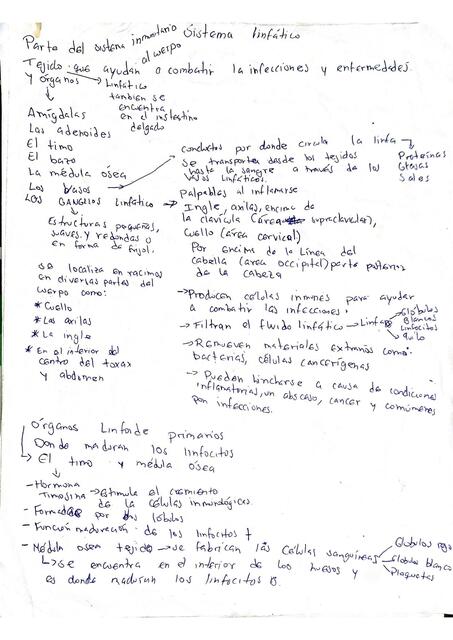 Sistema linfático
Parte del sistema inmunitario
al cuerpo
Tejido que ayudan a combatir la infecciones y enfermedades.
Y órganos
Linfático
tambien se
encuentra
en el instestino
delgado
Amígdalas
Los adenoides
El timo
El bazo
La médula ósea
Los vasos
Los Ganglios linfático
conductos por donde circula la linfa
Se transporta desde los tejidos
hasta la sangre a través de los
vasos linfáticos.
Proteínas
Grasas
Sales
Palpables al inflamarse
Ingle, axilas, encima de
la clavícula (área supraclavicular),
Cuello (área cervical)
Por encima de la Línea del
cabella (area occipital) parte posterior
de la cabeza
Estructuras pequeñas,
suaves y redondas o
en forma de frijol.
se localiza en racimos
en diversas partes del
cuerpo como:
* Cuello
* Las axilas
* La ingle
* En el interior del
centro del torax
y abdomen
→ Producen células inmunes para ayudar
a combatir las infecciones.
→ Filtran el fluido linfático → Linfa
Glóbulos
blancos
linfocitos
quilo
→ Remueven materiales extraños como
bacterias, células cancerígenas
→ Pueden hincharse a causa de condiciones
inflamatorias, un abscaso, cancer y comúnmente
por infecciones.
Órganos Linfoide primarios
Donde maduran los linfocitos
→ El timo y médula ósea
- Hormona
Timosina → Estimula el crecimiento
de la células inmunológicas.
- Formada por dos lóbulos
- Función maduración de los linfocitos t
- Médula osea tejido → se fabrican las células sanguíneas
Glóbulos rojos
Glóbulos blanco
Plaquetas
↳ se encuentra en el interior de los huesos y
es donde maduran los linfocitos B.